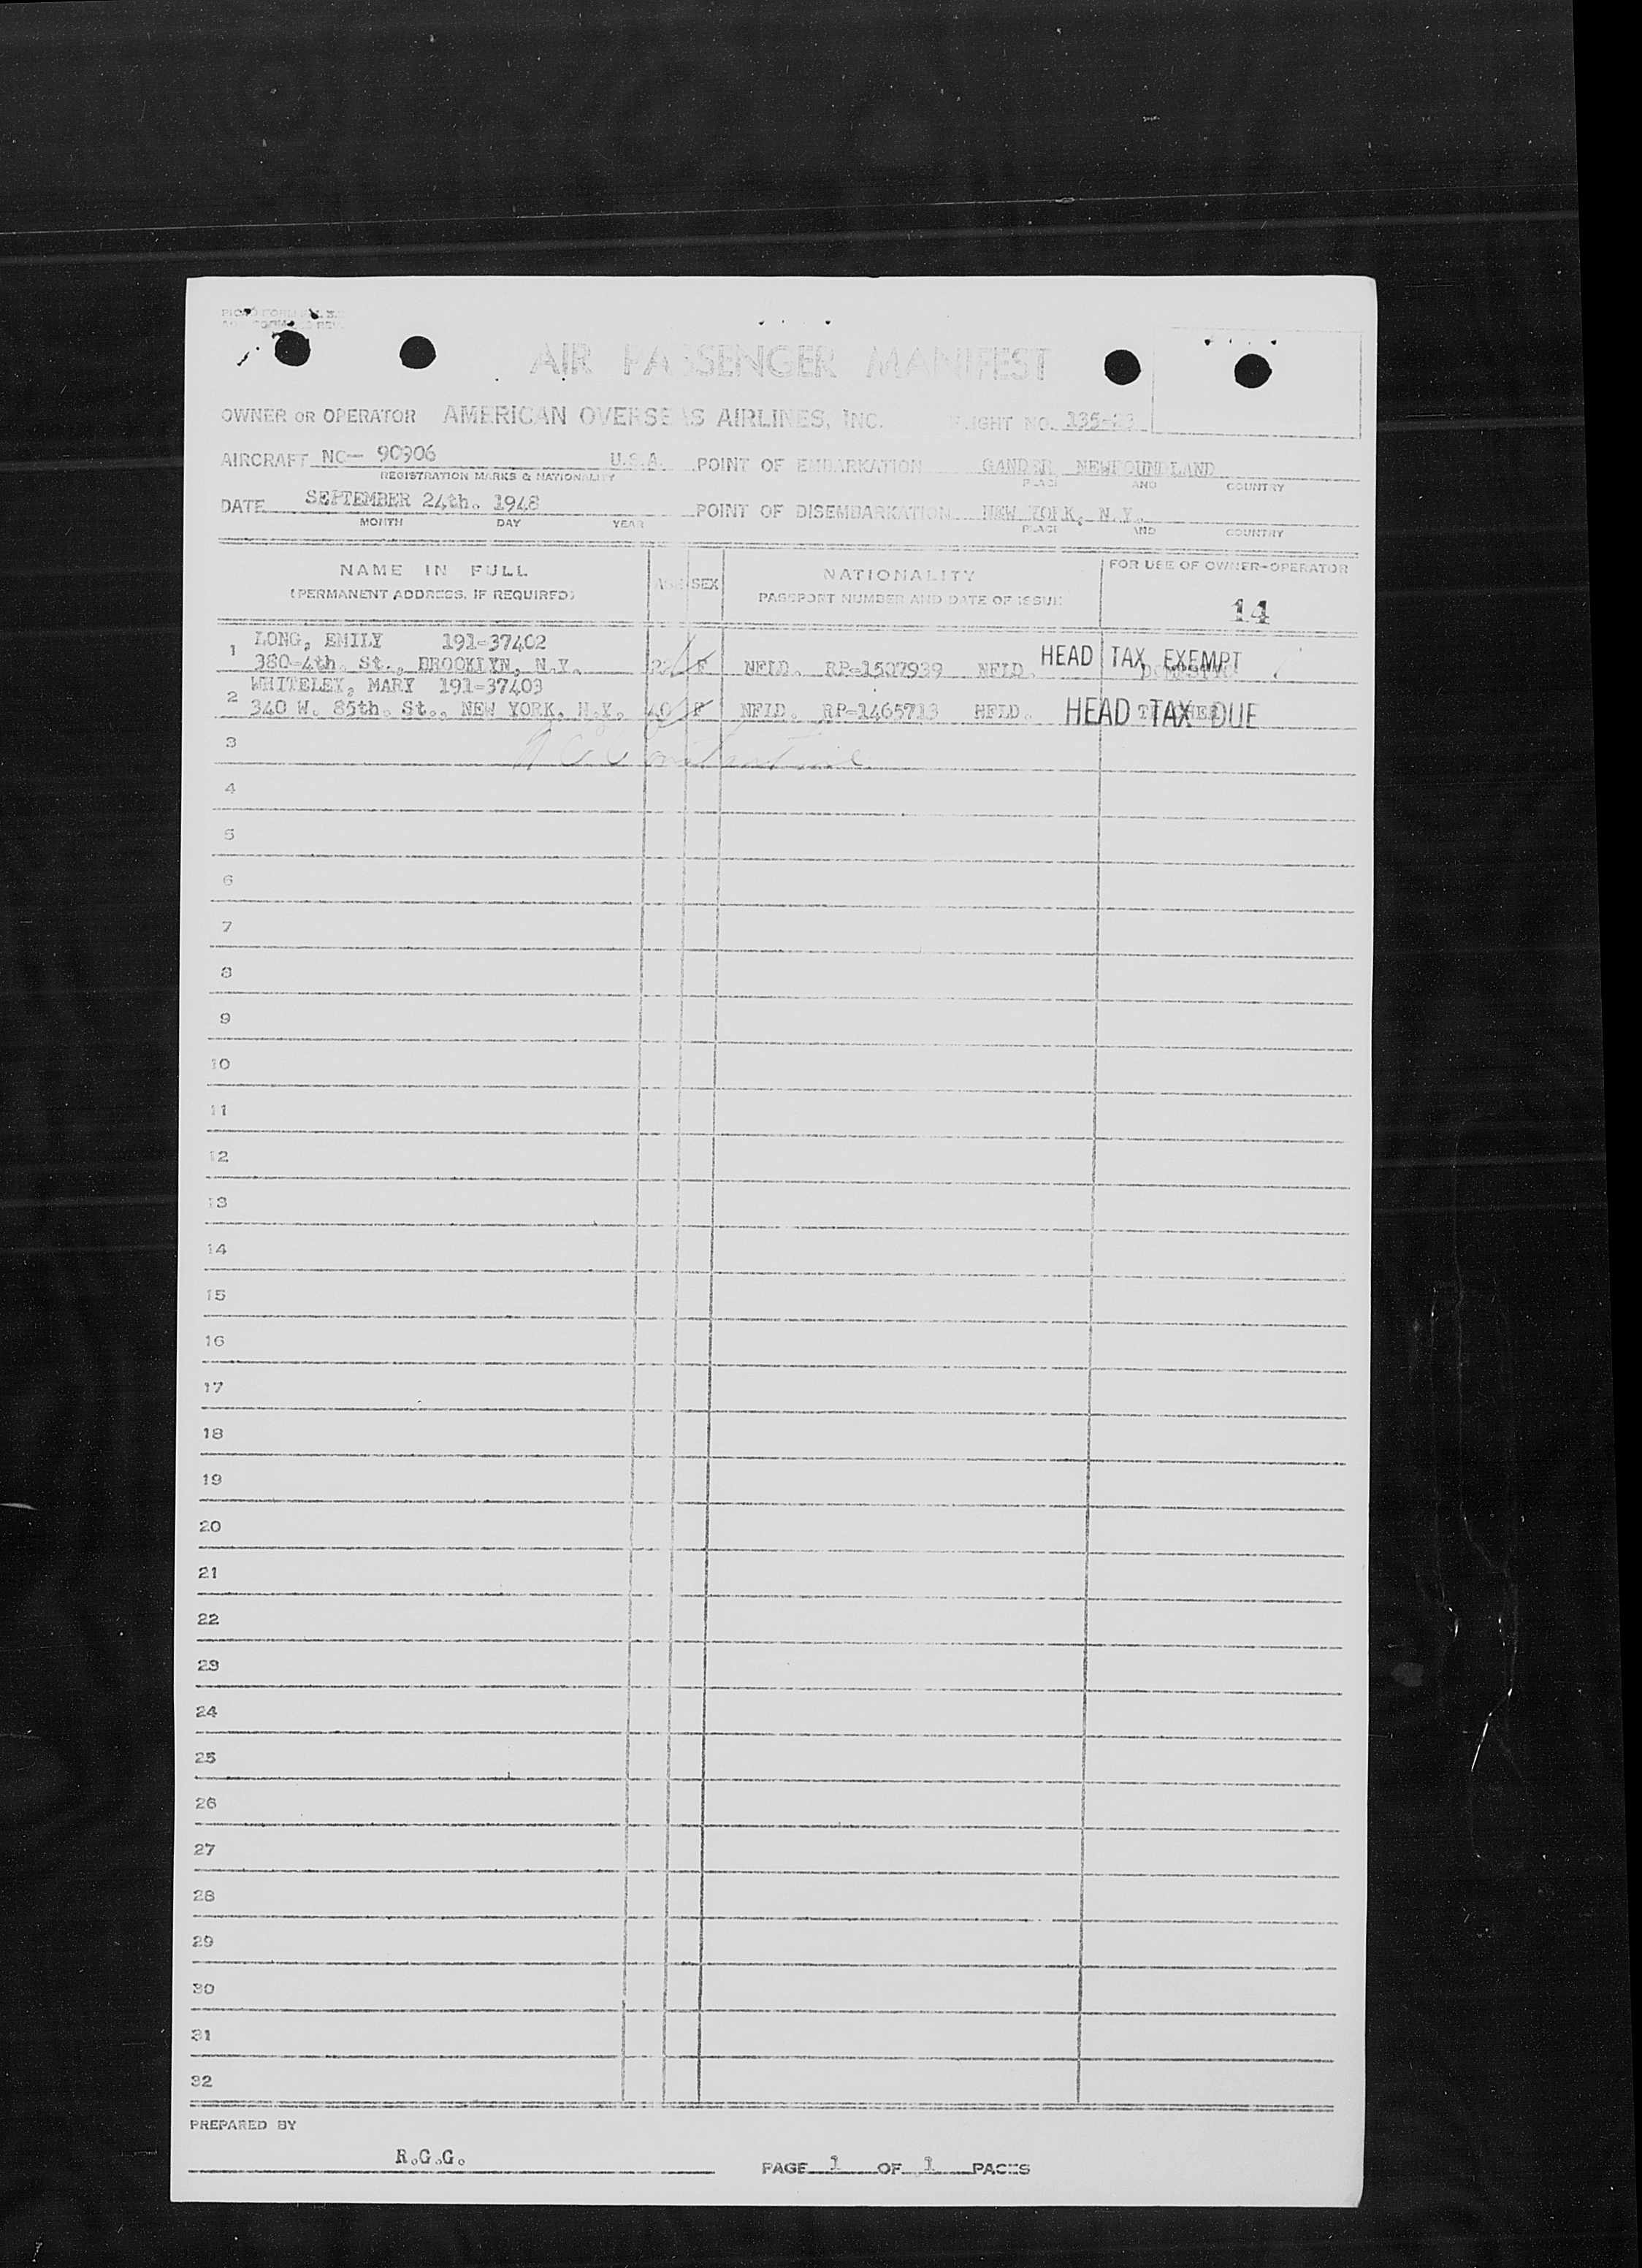 AIR PASSENGER MANIFEST
OWNER OR OPERATOR AMERICAN OVERSEAS AIRLINES, INC. FLIGHT NO. 135-23
AIRCRAFT NC- 90906 U.S.A. POINT OF EMBARKATION GANDER NEWFOUNDLAND
REGISTRATION MARKS & NATIONALITY PLACE AND COUNTRY
DATE SEPTEMBER 24th. 1948 POINT OF DISEMBARKATION NEW YORK, N.Y.
MONTH DAY YEAR PLACE AND COUNTRY
NAME IN FULL AGE SEX NATIONALITY FOR USE OF OWNER-OPERATOR
(PERMANENT ADDRESS, IF REQUIRED) PASSPORT NUMBER AND DATE OF ISSUE
14
1 LONG, EMILY 191-37402
380-4th. St., BROOKLYN, N.Y. F NFLD. RP-1507939 NFLD. HEAD TAX EXEMPT DOMESTIC
2 WHITELEY, MARY 191-37403
340 W. 85th. St., NEW YORK, N.Y. 40 F NFLD. RP-1465713 NFLD. HEAD TAX DUE
3
4
5
6
7
8
9
10
11
12
13
14
15
16
17
18
19
20
21
22
23
24
25
26
27
28
29
30
31
32
PREPARED BY
R.G.G. PAGE 1 OF 1 PAGES